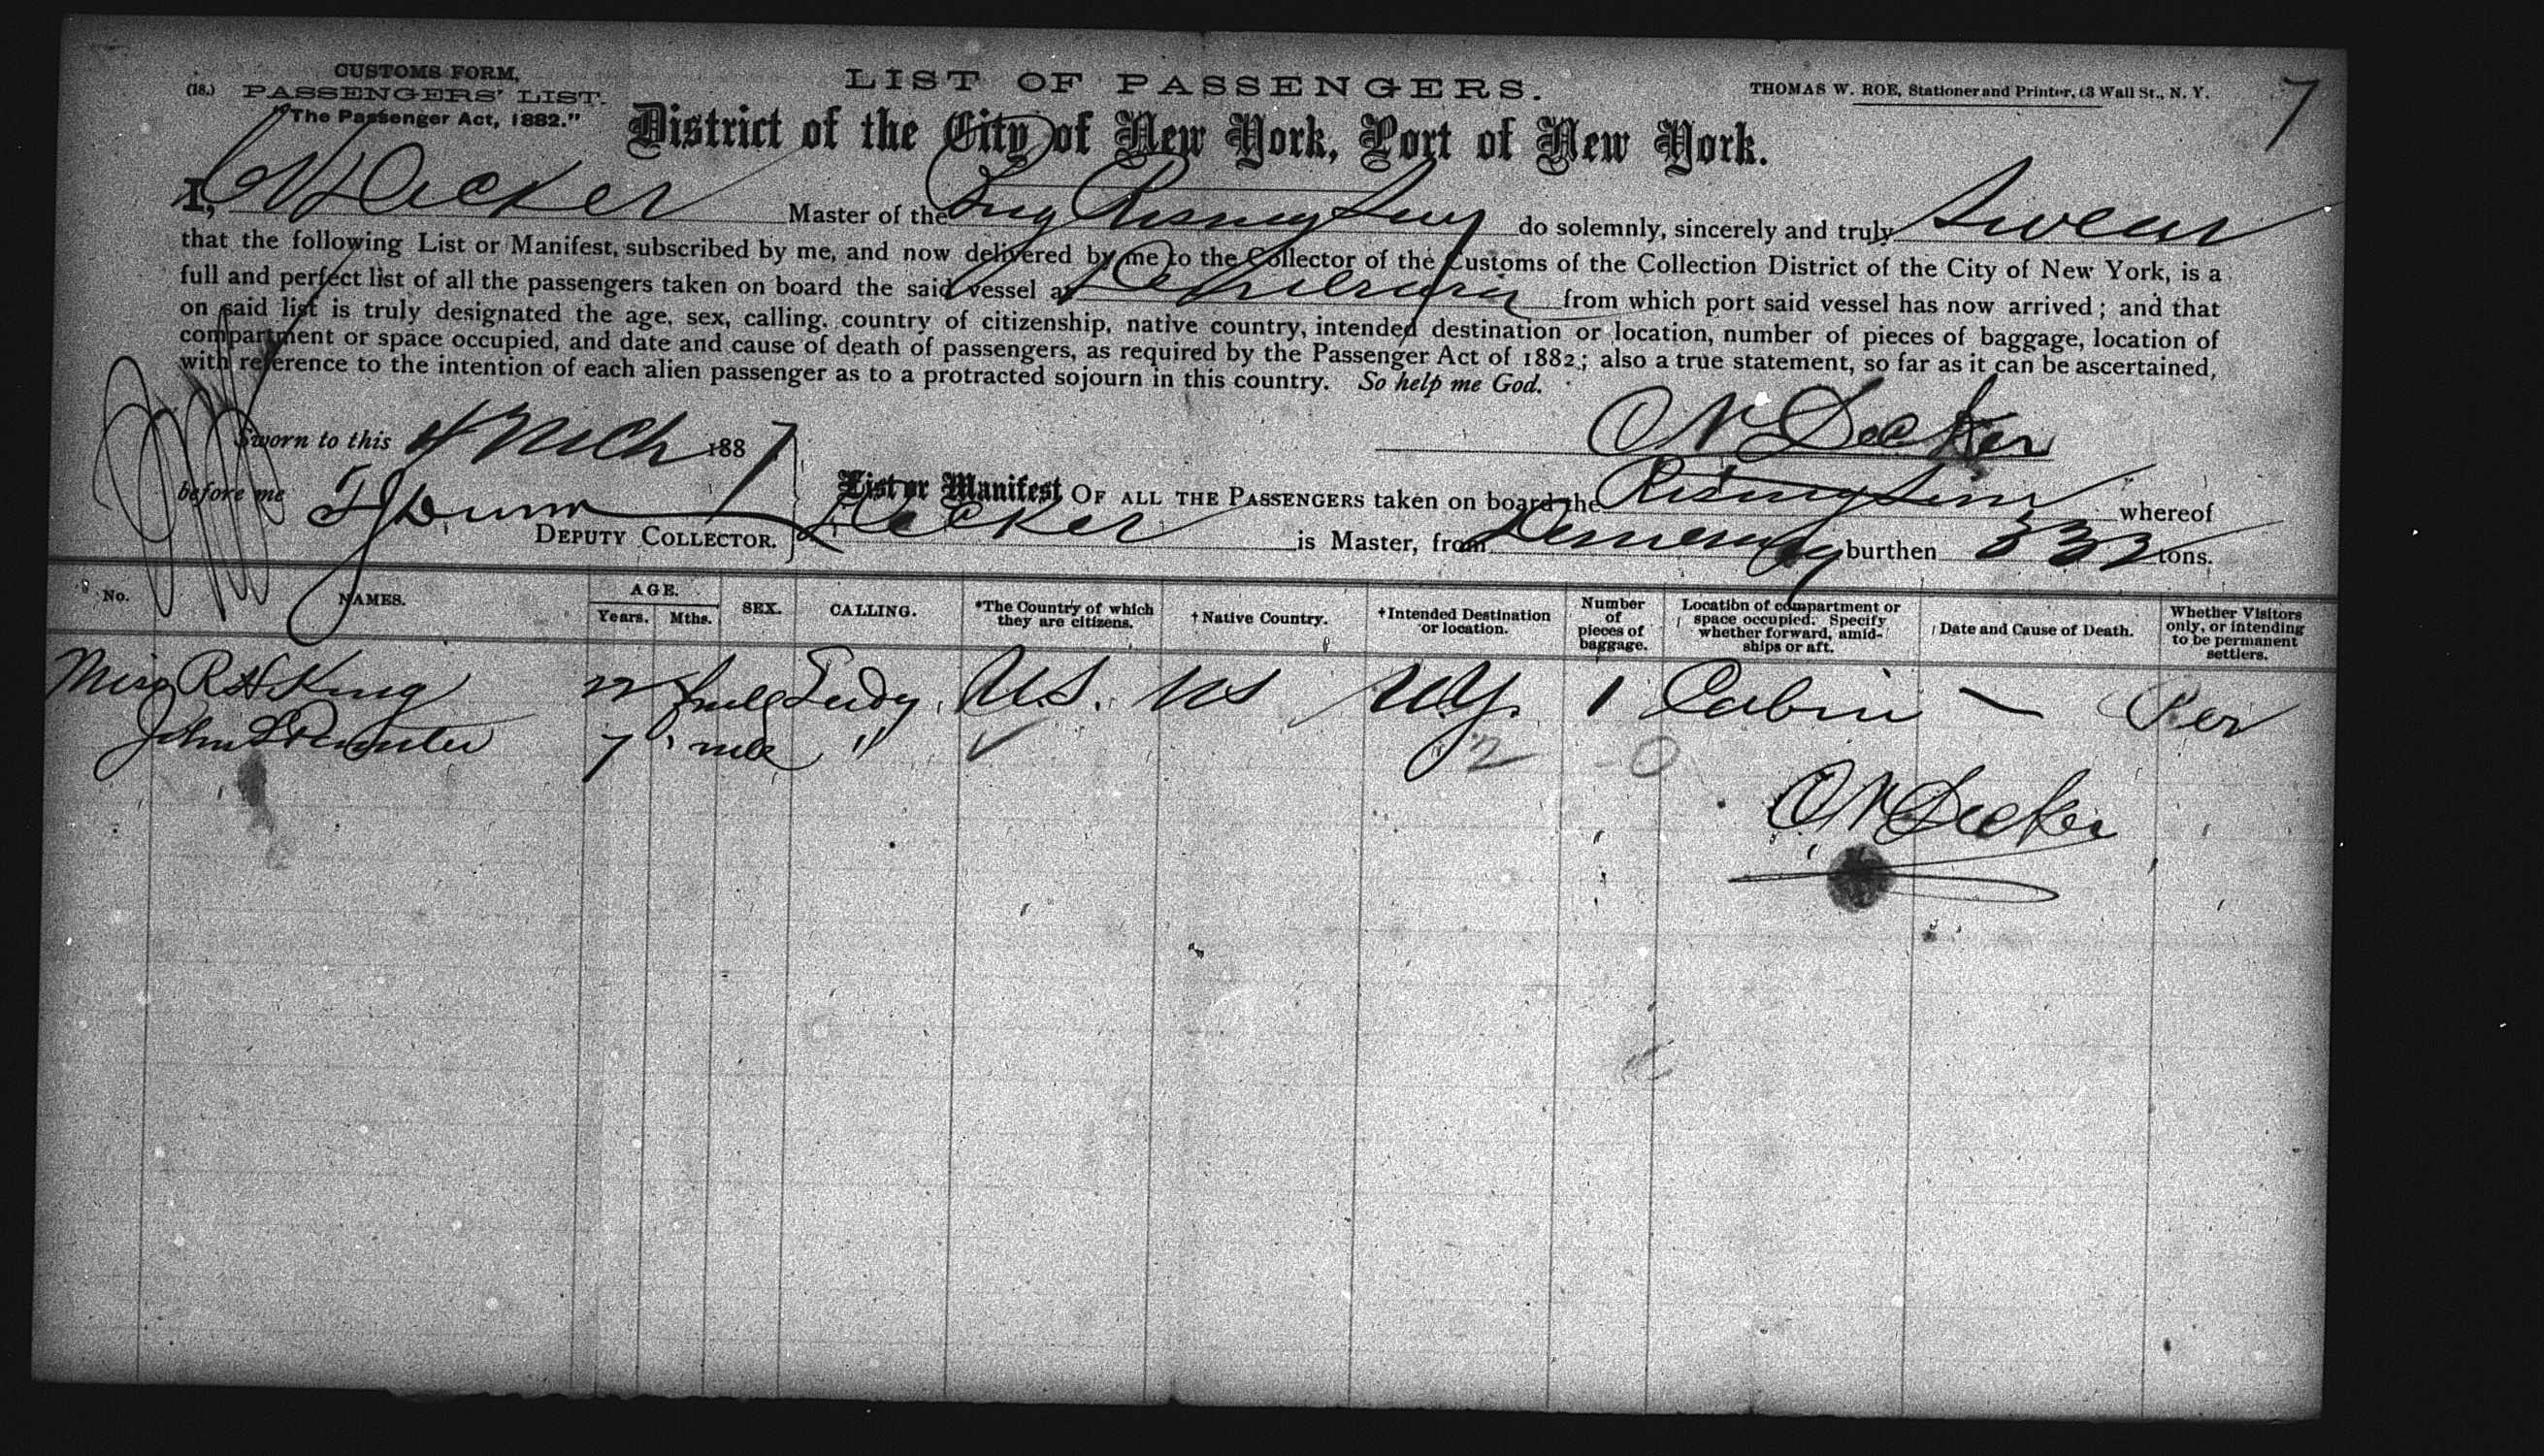 CUSTOMS FORM,
(18.) PASSENGERS' LIST.
"The Passenger Act, 1882."
LIST OF PASSENGERS.
THOMAS W. ROE, Stationer and Printer, 13 Wall St., N. Y.
7
District of the City of New York, Port of New York.
I, Decker Master of the Brig Rising Sun do solemnly, sincerely and truly Swear
that the following List or Manifest, subscribed by me, and now delivered by me to the Collector of the Customs of the Collection District of the City of New York, is a
full and perfect list of all the passengers taken on board the said vessel at from which port said vessel has now arrived; and that
on said list is truly designated the age, sex, calling, country of citizenship, native country, intended destination or location, number of pieces of baggage, location of
compartment or space occupied, and date and cause of death of passengers, as required by the Passenger Act of 1882; also a true statement, so far as it can be ascertained,
with reference to the intention of each alien passenger as to a protracted sojourn in this country. So help me God.
O N Decker
Sworn to this 4 Mch 1887
before me
DEPUTY COLLECTOR.
List or Manifest OF ALL THE PASSENGERS taken on board the Rising Sun whereof
Decker is Master, from Demerary burthen 332 tons.
No. NAMES. AGE. Years. Mths. SEX. CALLING. *The Country of which they are citizens. †Native Country. †Intended Destination or location. Number of pieces of baggage. Location of compartment or space occupied. Specify whether forward, amidships or aft. Date and Cause of Death. Whether Visitors only, or intending to be permanent settlers.
Miss R H King 22 Lady U.S. US NY. 1 Cabin — Per
John 7 "
2 - 0
O N Decker